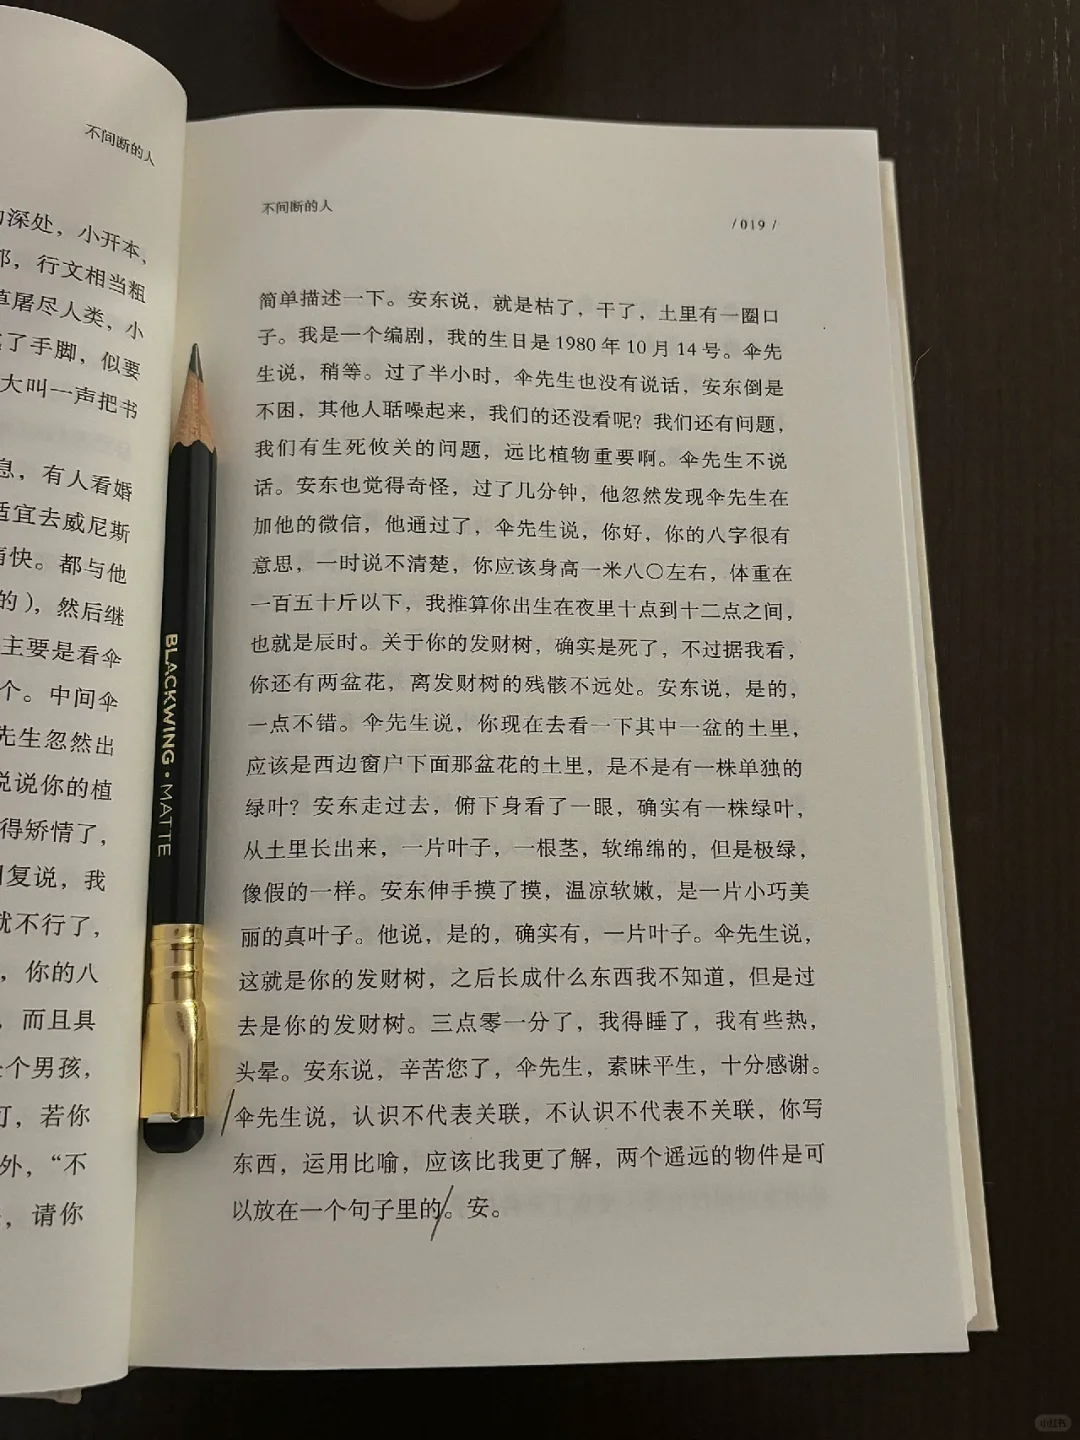 不间断的人
深处，小开本，
行文相当粗
屠尽人类，小
了手脚，似要
大叫一声把书
息，有人看婚
适宜去威尼斯
痛快。都与他
的），然后继
主要是看伞
个。中间伞
先生忽然出
说说你的植
得矫情了，
回复说，我
就不行了，
，你的八
，而且具
个男孩，
可，若你
外，“不
，请你
BLACKWING·MATTE
不间断的人
/019/
简单描述一下。安东说，就是枯了，干了，土里有一圈口
子。我是一个编剧，我的生日是1980年10月14号。伞先
生说，稍等。过了半小时，伞先生也没有说话，安东倒是
不困，其他人聒噪起来，我们的还没看呢？我们还有问题，
我们有生死攸关的问题，远比植物重要啊。伞先生不说
话。安东也觉得奇怪，过了几分钟，他忽然发现伞先生在
加他的微信，他通过了，伞先生说，你好，你的八字很有
意思，一时说不清楚，你应该身高一米八〇左右，体重在
一百五十斤以下，我推算你出生在夜里十点到十二点之间，
也就是辰时。关于你的发财树，确实是死了，不过据我看，
你还有两盆花，离发财树的残骸不远处。安东说，是的，
一点不错。伞先生说，你现在去看一下其中一盆的土里，
应该是西边窗户下面那盆花的土里，是不是有一株单独的
绿叶？安东走过去，俯下身看了一眼，确实有一株绿叶，
从土里长出来，一片叶子，一根茎，软绵绵的，但是极绿，
像假的一样。安东伸手摸了摸，温凉软嫩，是一片小巧美
丽的真叶子。他说，是的，确实有，一片叶子。伞先生说，
这就是你的发财树，之后长成什么东西我不知道，但是过
去是你的发财树。三点零一分了，我得睡了，我有些热，
头晕。安东说，辛苦您了，伞先生，素昧平生，十分感谢。
伞先生说，认识不代表关联，不认识不代表不关联，你写
东西，运用比喻，应该比我更了解，两个遥远的物件是可
以放在一个句子里的。安。
小红书